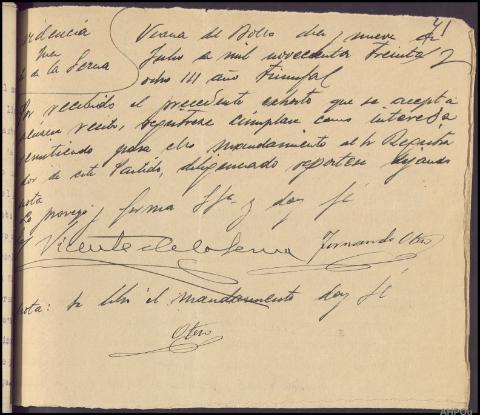 41
Providencia
Juez
de la Serna
Viana de Bollo diez y nueve de
Julio de mil novecientos treinta y
ocho III año triunfal
Por recibido el precedente exhorto que se acepta
acúsese recibo, regístrese cúmplase como interesa
remitiendo para ello mandamiento al Sr Registra
dor de este Partido, diligenciado repórtese dejando
nota
Lo proveyó y firma SSª y doy fé
Vicente de la Serna Fernando Otero
nota: se libró el mandamiento doy fé
Otero
AHPOu